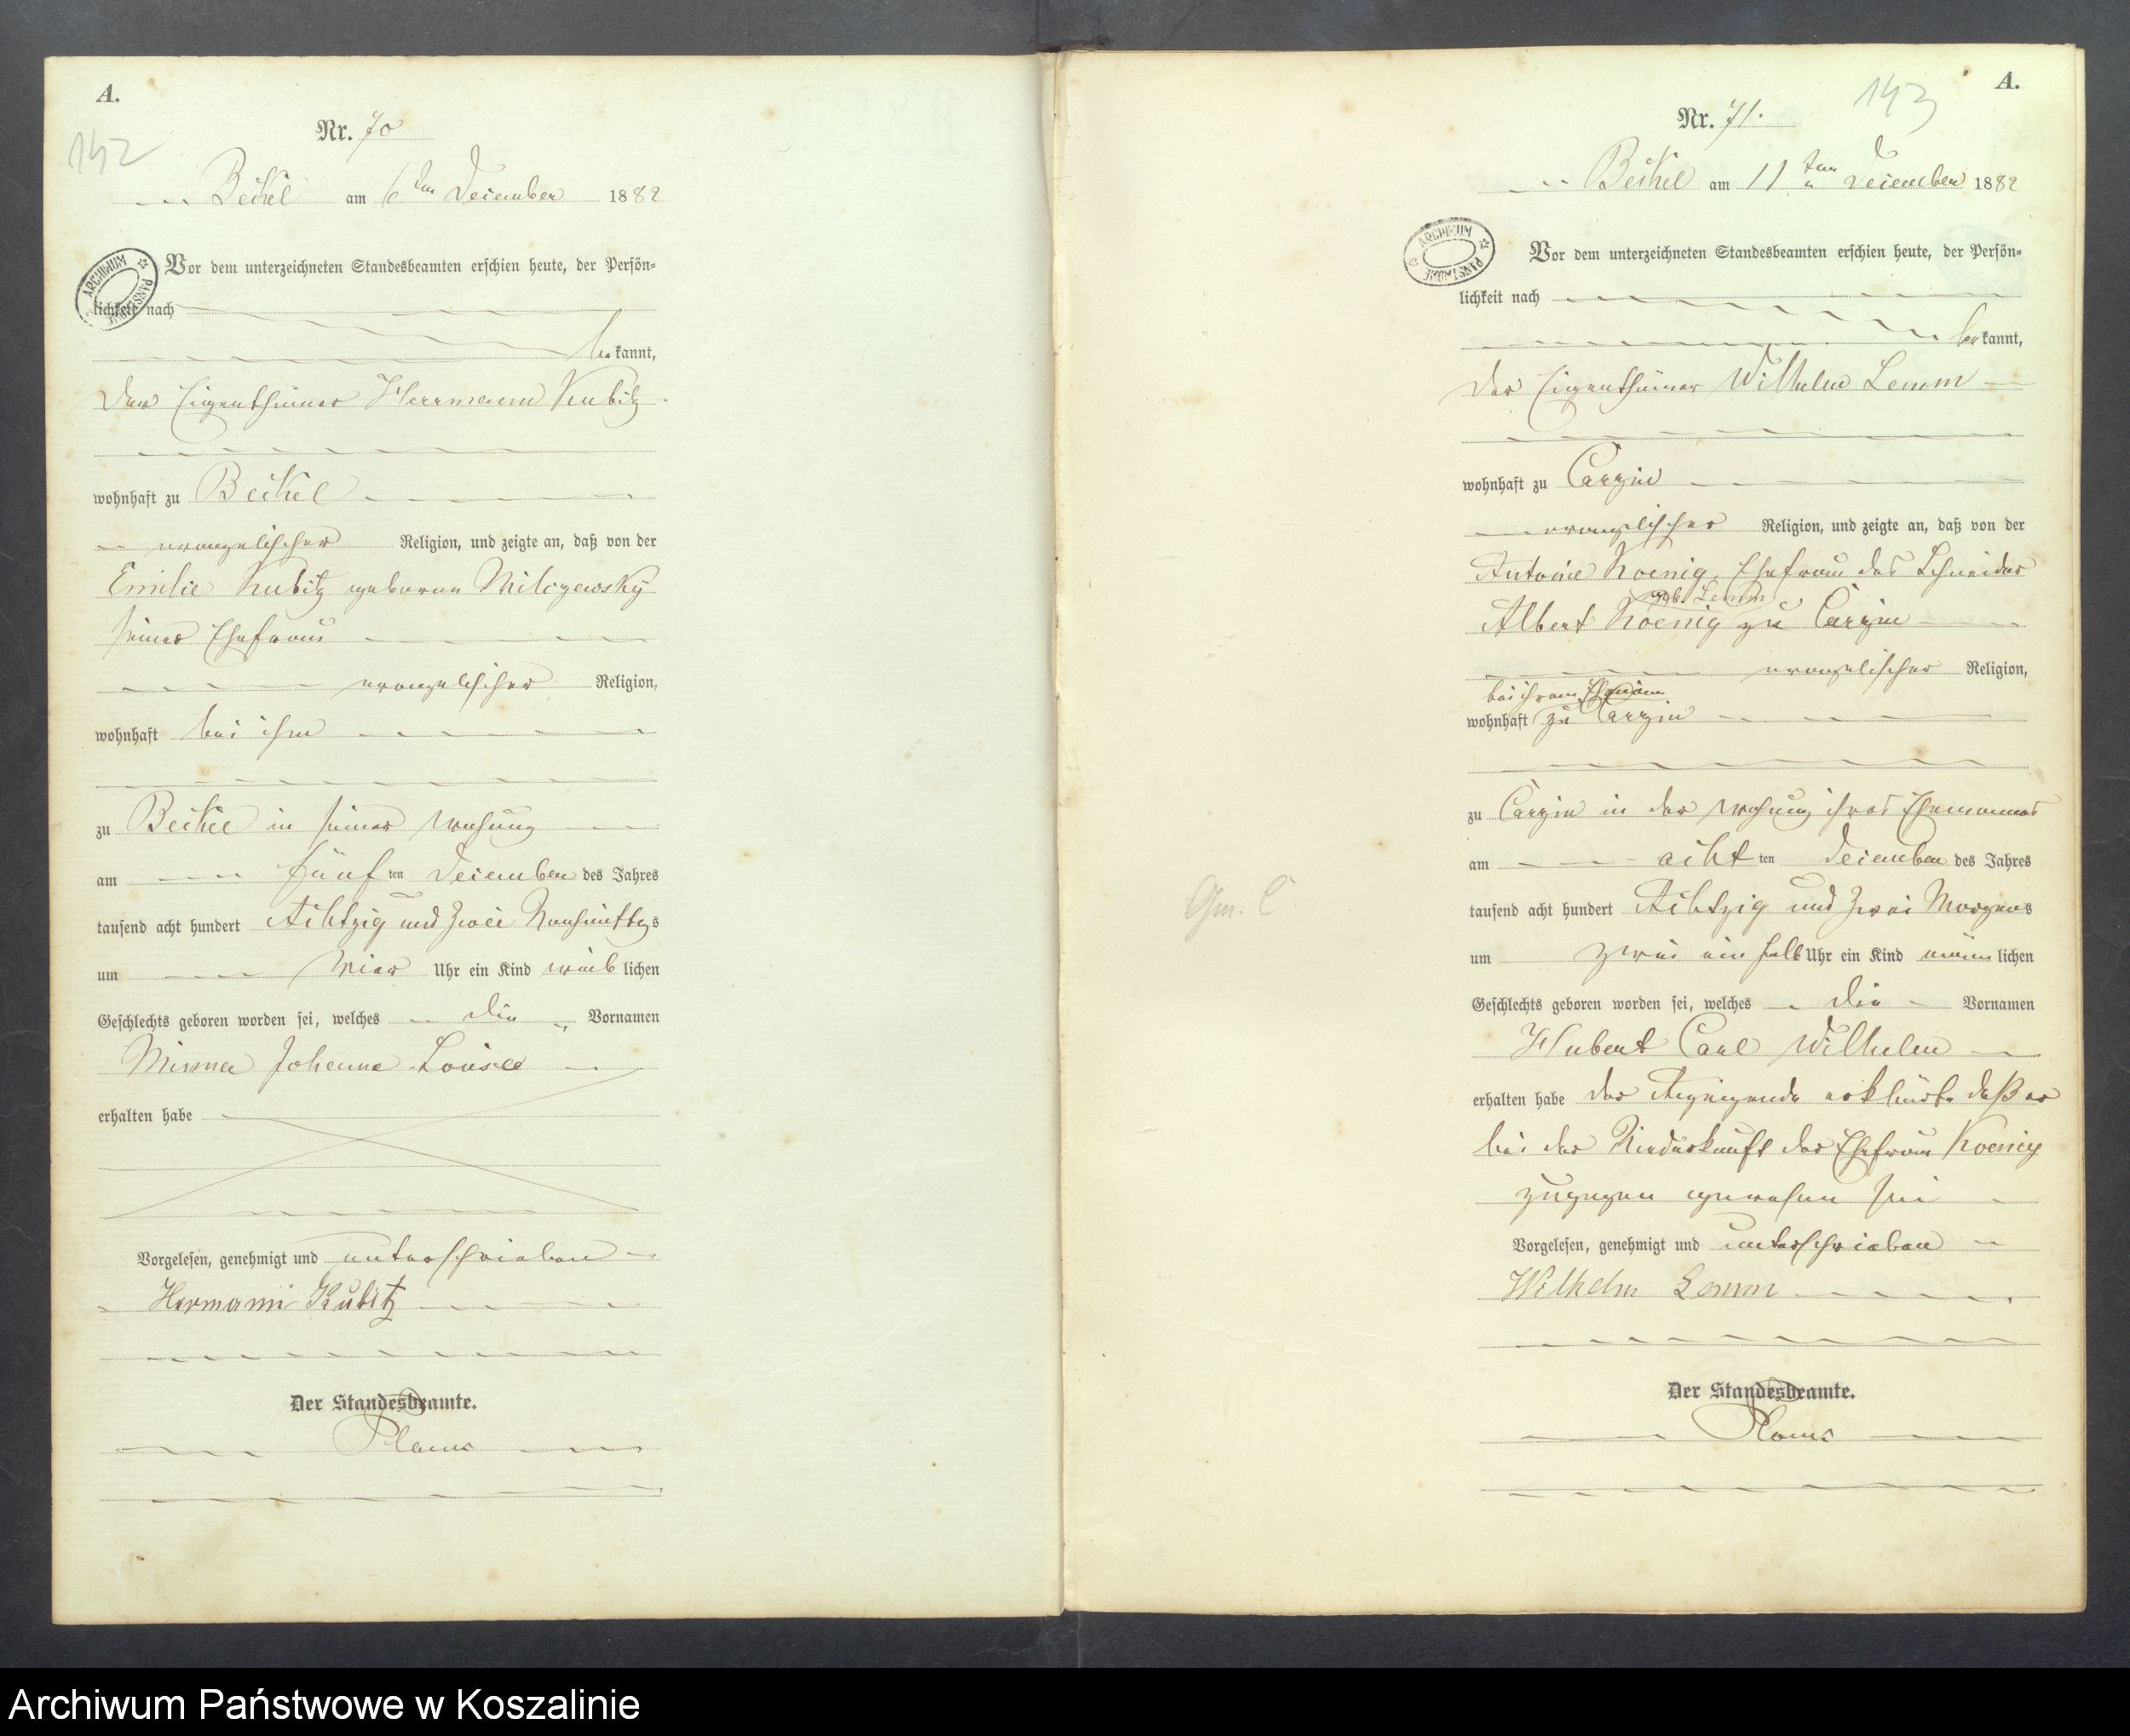 A.
142
Nr. 70
Beckel am 6 ten December 1882
ARCHIWUM PAŃSTWOWE
Vor dem unterzeichneten Standesbeamten erschien heute, der Persön=
lichkeit nach
bekannt,
Der Eigenthümer Herrmann Kubitz
wohnhaft zu Beckel
evangelischer Religion, und zeigte an, daß von der
Emilie Kubitz geborene Milczewsky
seiner Ehefrau
evangelischer Religion,
wohnhaft bei ihm
zu Beckel in seiner Wohnung
am fünften December des Jahres
tausend acht hundert Achtzig und Zwei Nachmittags
um vier Uhr ein Kind weiblichen
Geschlechts geboren worden sei, welches die Vornamen
Minna Johanne Louise
erhalten habe
Vorgelesen, genehmigt und unterschrieben
Hermann Kubitz
Der Standesbeamte.
A.
143
Nr. 71.
Beckel am 11 ten December 1882
ARCHIWUM PAŃSTWOWE
Vor dem unterzeichneten Standesbeamten erschien heute, der Persön=
lichkeit nach
bekannt,
Der Eigenthümer Wilhelm Lemm
wohnhaft zu Carzin
evangelischer Religion, und zeigte an, daß von der
Antonie Koenig, Ehefrau des Schneider
geb. Lemm
Albert Koenig zu Carzin
evangelischer Religion,
bei ihrem Ehemann
wohnhaft zu Carzin
zu Carzin in der Wohnung ihres Ehemannes
am achtten December des Jahres
tausend acht hundert Achtzig und Zwei Morgens
um zwei ein halb Uhr ein Kind männlichen
Geschlechts geboren worden sei, welches die Vornamen
Hubert Carl Wilhelm
erhalten habe der Anzeigende erklärte daß er
bei der Niederkunft der Ehefrau Koenig
zugegen gewesen sei
Vorgelesen, genehmigt und unterschrieben
Wilhelm Lemm
Der Standesbeamte.
Archiwum Państwowe w Koszalinie